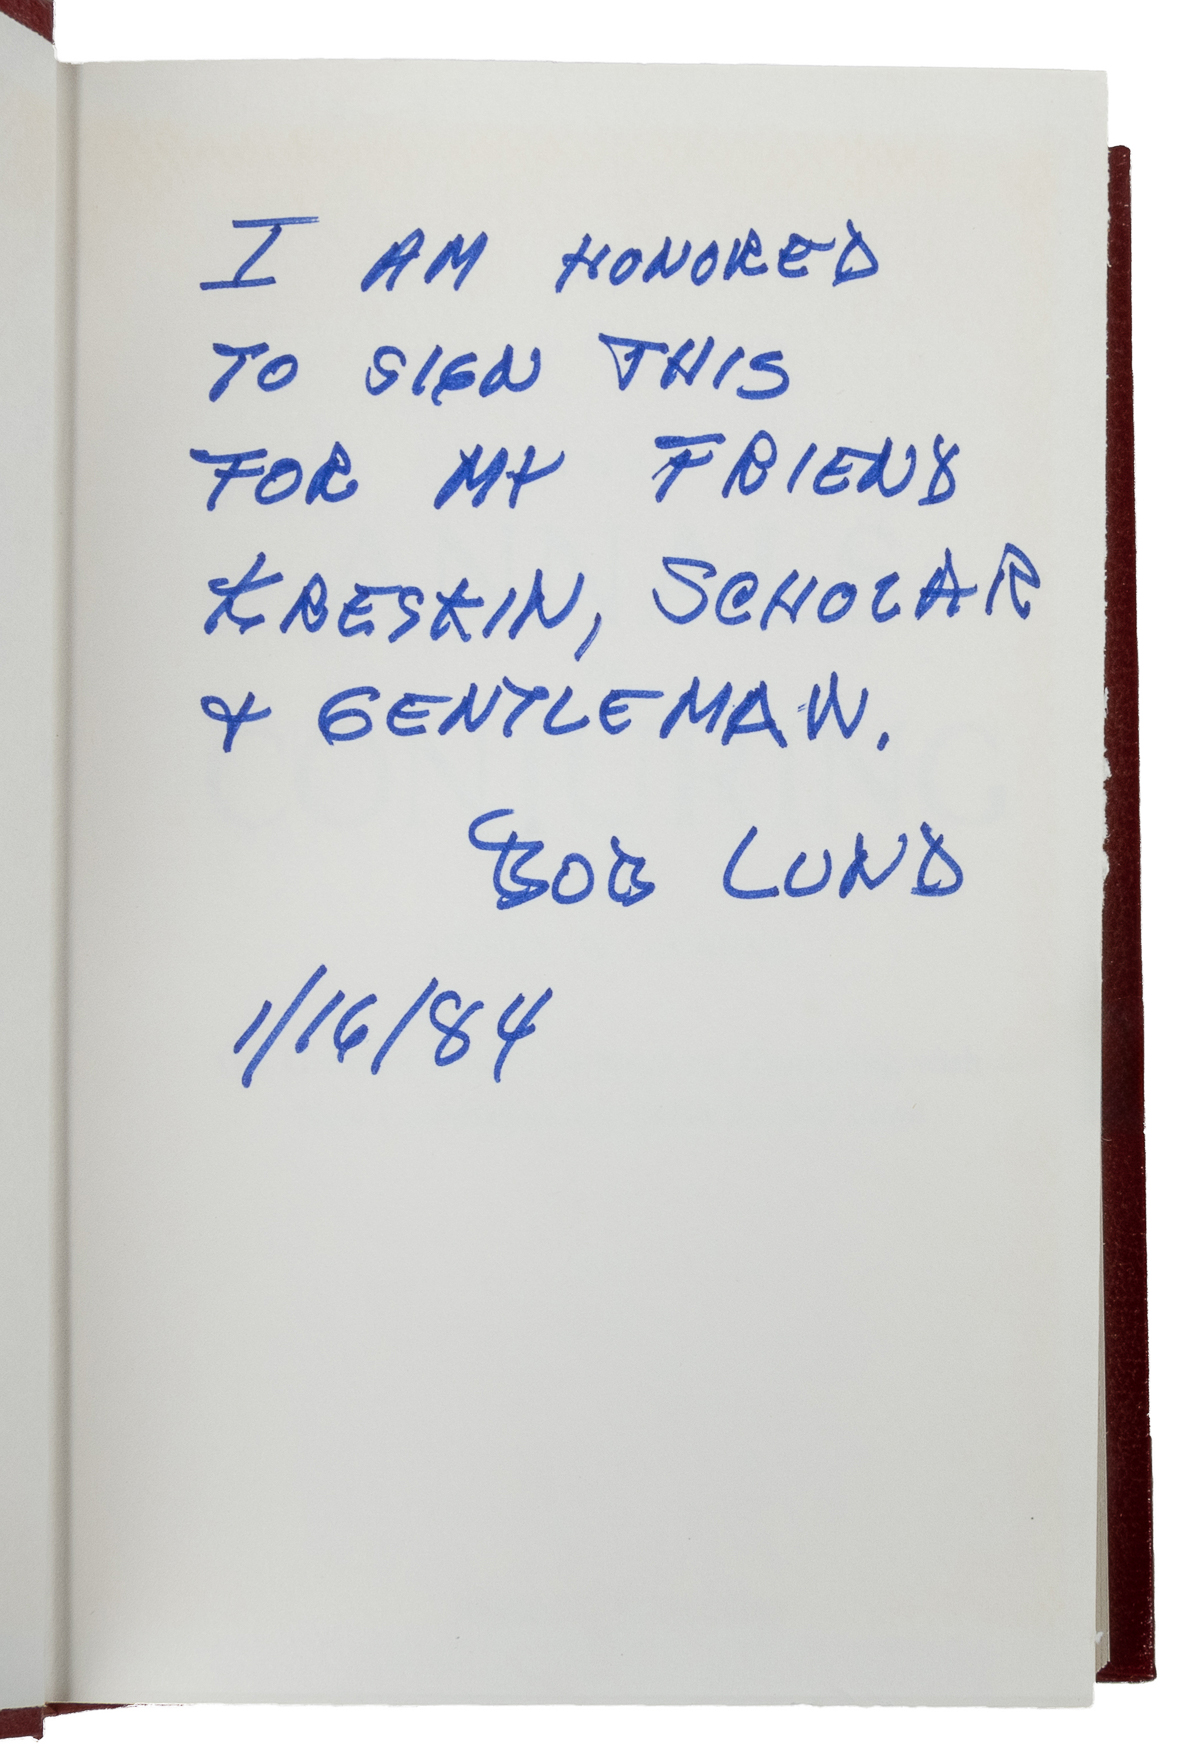 I AM HONORED
TO SIGN THIS
FOR MY FRIEND
KRESKIN, SCHOLAR
& GENTLEMAN.
BOB LUND
1/16/84